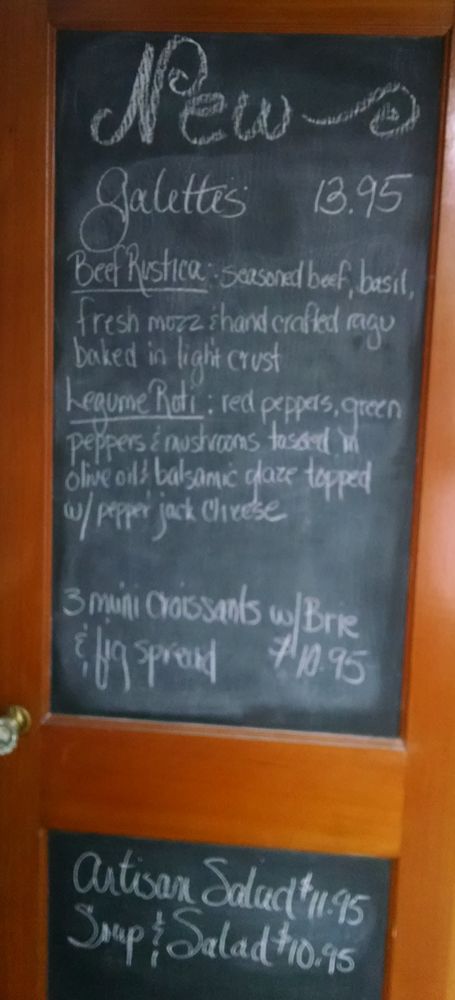 New
Galettes 13.95
Beef Rustica: seasoned beef, basil,
fresh mozz & hand crafted ragu
baked in light crust
Legume Roti: red peppers, green
peppers & mushrooms tossed in
olive oil & balsamic glaze topped
w/ pepper jack cheese
3 mini croissants w/ Brie
& fig spread $10.95
Artisan Salad $11.95
Soup & Salad $10.95